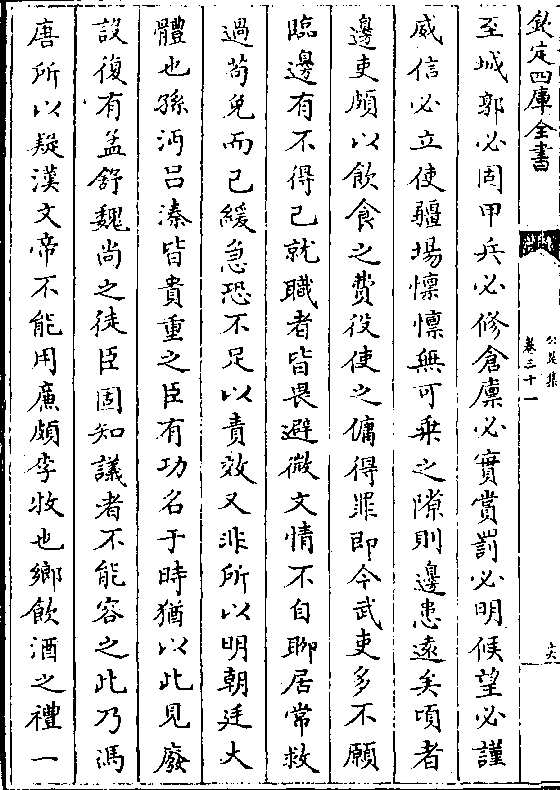 欽定四庫全書
公是集
卷三十一
至城郭必固甲兵必修倉廩必實賞罰必明候望必謹
威信必立使疆場懍懍無可乗之隙則邊患遠矣頃者
邊吏頗以飲食之費役使之傭得罪即今武吏多不願
臨邊有不得已就職者皆畏避微文情不自聊居常救
過苟免而已緩急恐不足以責效又非所以明朝廷大
體也孫沔吕溱皆貴重之臣有功名于時猶以此見廢
設復有孟舒魏尚之徒臣固知議者不能容之此乃馮
唐所以疑漢文帝不能用廉頗李牧也鄉飲酒之禮一